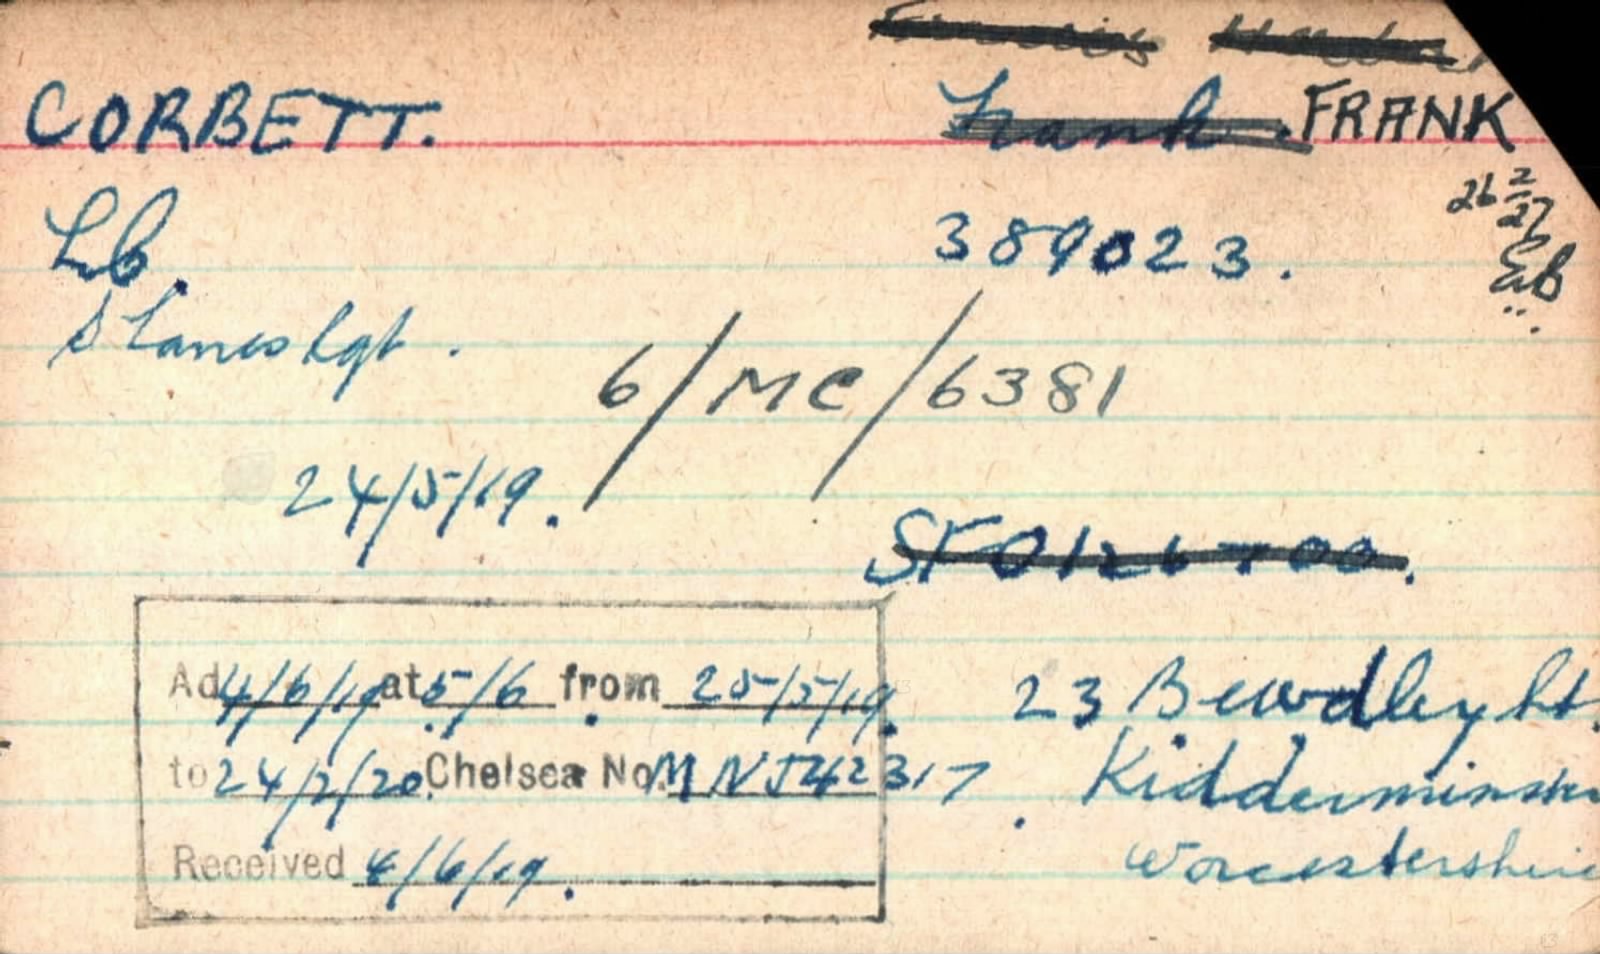 CORBETT.
Frank. FRANK
26 2/27
389023.
S Lancs Rgt.
6/MC/6381
24/5/19.
Ad 4/6/19 at 5/6 from 25/5/19.
to 24/2/20. Chelsea No.
Received 4/6/19.
23 Bewdley ht.
Kidderminster
Worcestershire